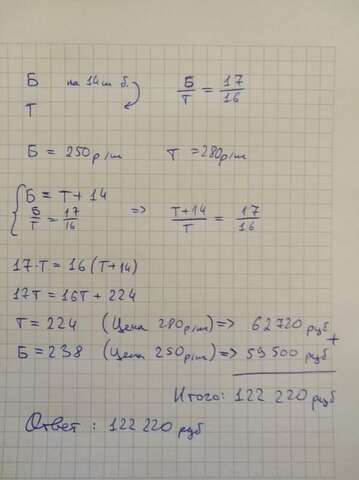 Б на 14 ш б. Б/Т = 17/16
Т
Б = 250 р/ш Т = 280р/ш
{ Б = Т + 14
Б/Т = 17/16 => Т+14/Т = 17/16
17·Т = 16(Т+14)
17Т = 16Т + 224
Т = 224 (Цена 280р/ш) => 62 720 руб
+
Б = 238 (Цена 250р/ш) => 59 500 руб
Итого: 122 220 руб
Ответ : 122 220 руб